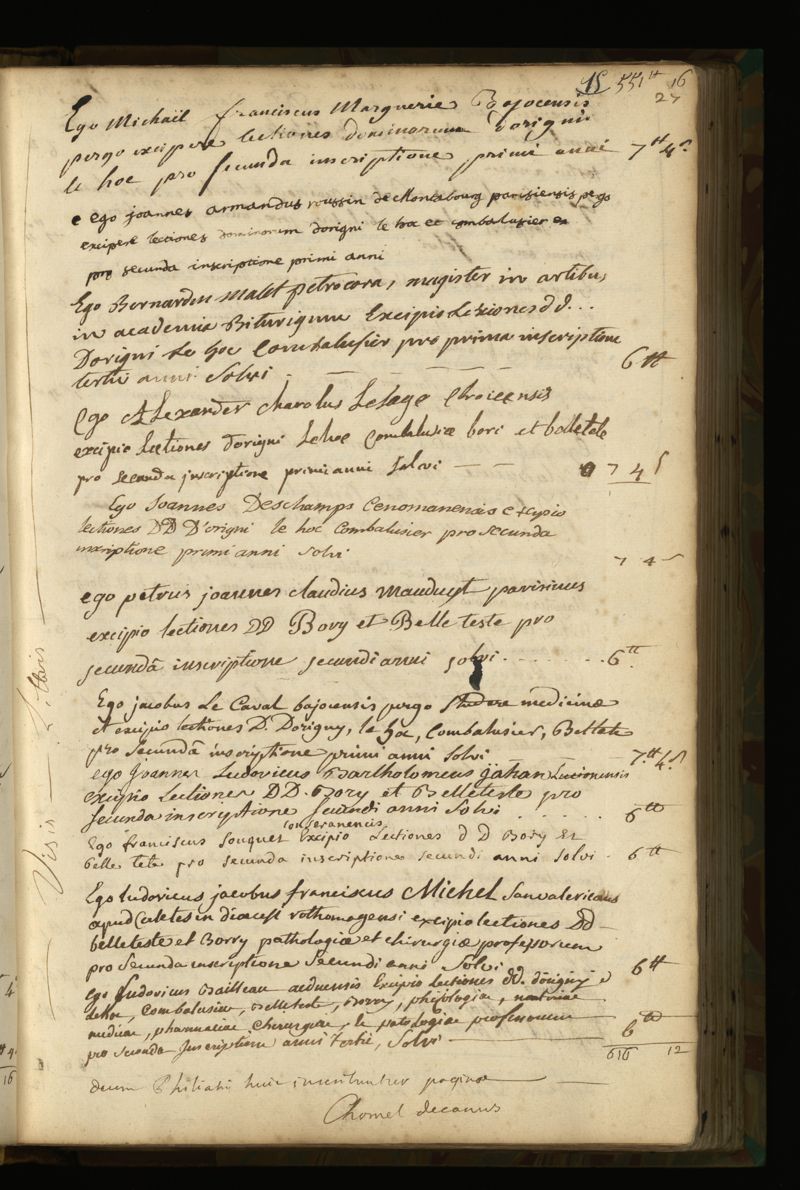 15 551 tt 16
27
Ego Michaël franciscus Marguerie Bajocensis
pergo excipere lectiones dominorum Dorigni
le hoc pro secunda inscriptione primi anni 7 tt 4 s
ego joannes armandus roussin de Montabourg parisiensis pergo
excipere lectiones dominorum dorigni le hoc et combalusier
pro secunda inscriptione primi anni
Ego Bernardus Malet petrocora, magister in artibus
in academia Biturigum Excipio Lexiones dd...
Dorigni Le hoc Combalusier pro prima inscriptione
tertii anni Solvi 6 tt
Ego Alexander Charolus Lesage
excipio Lectiones dorigni Lehoc Combalusier bori et belletete
pro secunda inscriptione primi anni Solvi 7 4 s
Ego Joannes Deschamps Cenomanensis excipio
lectiones DD D'origni le hoc Combalusier pro secunda
inscriptione primi anni solvi 7 4 s
ego petrus joannes claudius mauduyt parisinus
excipio lectiones DD Bory et Belle teste pro
secundâ inscriptione secundi anni solvi . . . . . . . 6 tt
Ego jacobus Le Caval bajocensis pergo studere medicinæ
et excipio lectiones D. Dorigny, le hoc, Combalusier, Belletete
pro secundâ inscriptione primi anni solvi 7 tt 4 s
ego Joannes Ludovicus Bartholomeus jahan Lucionensis
excipio Lectiones DD. Bory et Belleteste pro
secunda inscriptione secundi anni Solvi . . . . . . 6 tt
conseranensis
Ego franciscus Souquet Excipio Lectiones d D Bory Et
belle tete pro secunda inscriptione secundi anni solvi . 6 tt
Ego ludovicus jacobus franciscus Michel Sanvalericanus
apud Caletes in diœcesi rothomagensi excipio lectiones Dd
belleteste et Borry pathologiæ et chirurgiæ professorum
pro secunda inscriptione Secundi anni Solvi 6 tt
Ego Ludovicus Bailleau aeduensis Excipio Lectiones dd. dorigny
dehoc, Combalusier, Belleteste, Borry, physiologiæ, materiæ
medicæ, pharmaciæ Chirurgiæ, et patologiæ professorum
pro secunda Inscriptione anni tertii, Solvi 6 tt
616 12
decem Philiatri huic inscribuntur paginæ
Chomel decanus
Visis Litteris